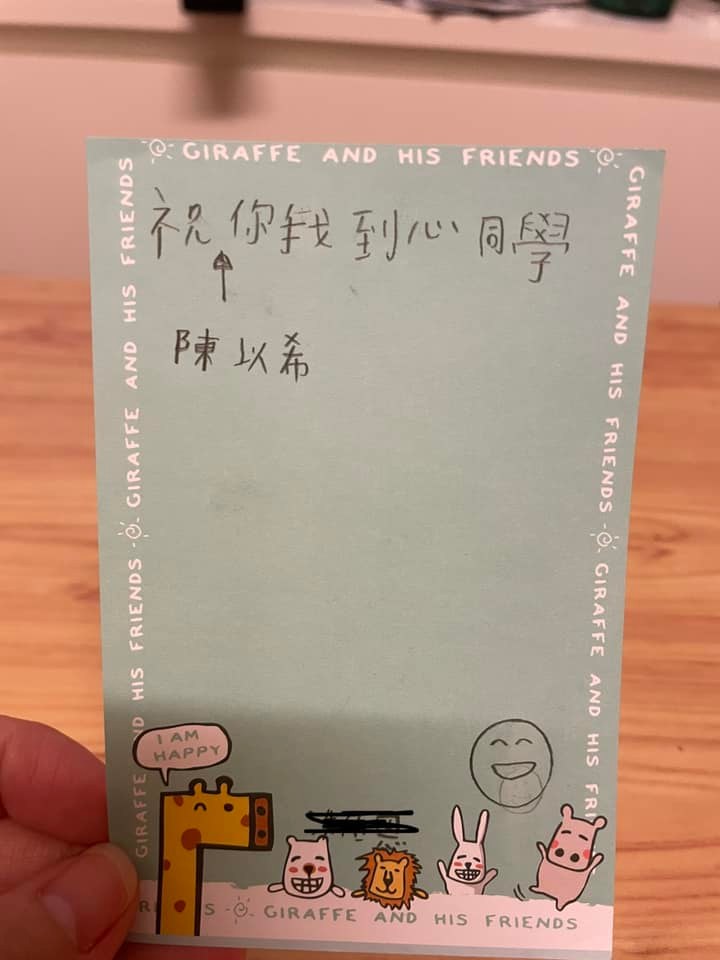 GIRAFFE AND HIS FRIENDS
祝你找到心同學
陳以希
GIRAFFE AND HIS FRIENDS
GIRAFFE AND HIS FRIENDS
GIRAFFE AND HIS FRIENDS
GIRAFFE AND HIS
I AM
HAPPY
GIRAFFE AND HIS FRIENDS